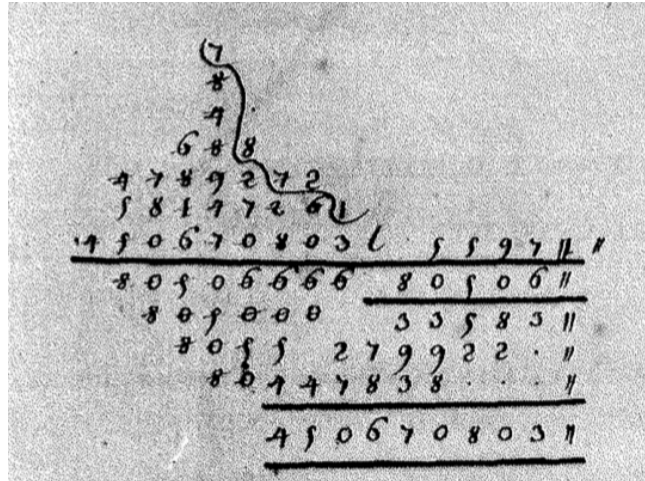 7
8
4
6 8 8
4 7 8 9 2 7 2
5 8 1 4 7 2 6 1
4 5 0 6 7 0 8 0 3 ( 5 5 9 7 // //
8 0 5 0 6 6 6 6 8 0 5 0 6 //
8 0 5 0 0 0 3 3 5 8 3 //
8 0 5 5 2 7 9 9 2 2 . //
8 0 4 4 7 8 3 8 . . . //
4 5 0 6 7 0 8 0 3 //